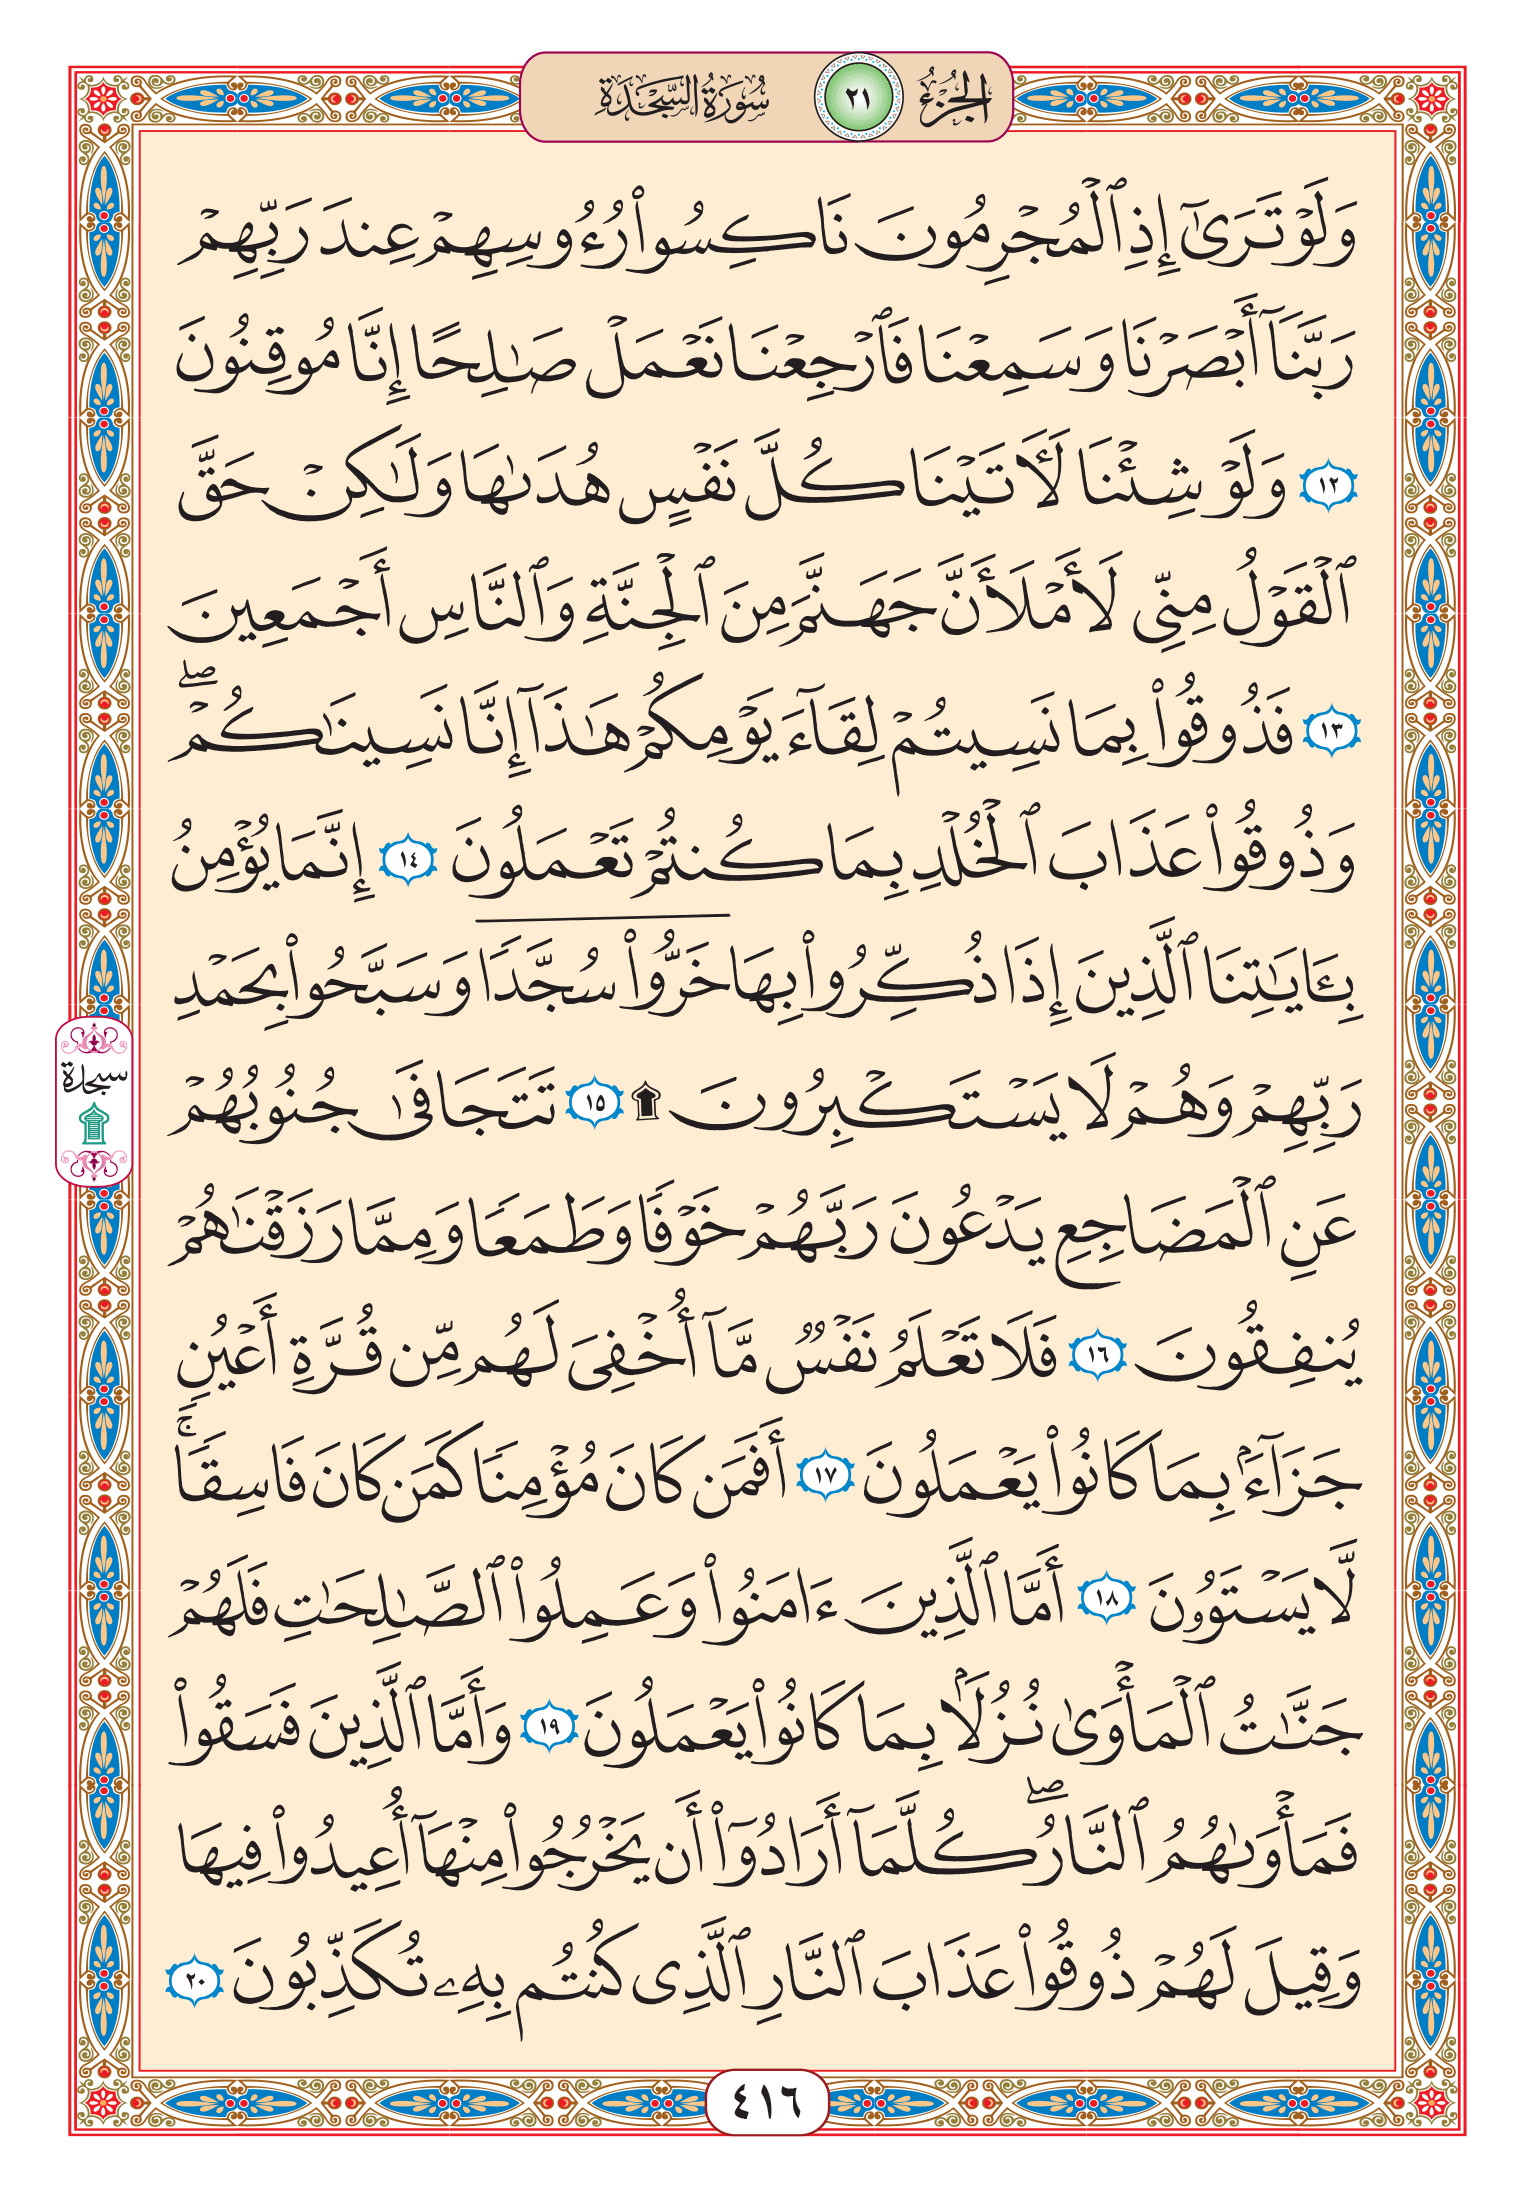 الجزء ٢١ سورة السجدة
وَلَوْ تَرَىٰٓ إِذِ ٱلْمُجْرِمُونَ نَاكِسُوا۟ رُءُوسِهِمْ عِندَ رَبِّهِمْ
رَبَّنَآ أَبْصَرْنَا وَسَمِعْنَا فَٱرْجِعْنَا نَعْمَلْ صَٰلِحًا إِنَّا مُوقِنُونَ
١٢ وَلَوْ شِئْنَا لَءَاتَيْنَا كُلَّ نَفْسٍ هُدَىٰهَا وَلَٰكِنْ حَقَّ
ٱلْقَوْلُ مِنِّى لَأَمْلَأَنَّ جَهَنَّمَ مِنَ ٱلْجِنَّةِ وَٱلنَّاسِ أَجْمَعِينَ
١٣ فَذُوقُوا۟ بِمَا نَسِيتُمْ لِقَآءَ يَوْمِكُمْ هَٰذَآ إِنَّا نَسِينَٰكُمْ ۖ
وَذُوقُوا۟ عَذَابَ ٱلْخُلْدِ بِمَا كُنتُمْ تَعْمَلُونَ ١٤ إِنَّمَا يُؤْمِنُ
بِـَٔايَٰتِنَا ٱلَّذِينَ إِذَا ذُكِّرُوا۟ بِهَا خَرُّوا۟ سُجَّدًا وَسَبَّحُوا۟ بِحَمْدِ
رَبِّهِمْ وَهُمْ لَا يَسْتَكْبِرُونَ ۩ ١٥ تَتَجَافَىٰ جُنُوبُهُمْ
سجدة
عَنِ ٱلْمَضَاجِعِ يَدْعُونَ رَبَّهُمْ خَوْفًا وَطَمَعًا وَمِمَّا رَزَقْنَٰهُمْ
يُنفِقُونَ ١٦ فَلَا تَعْلَمُ نَفْسٌ مَّآ أُخْفِىَ لَهُم مِّن قُرَّةِ أَعْيُنٍ
جَزَآءًۢ بِمَا كَانُوا۟ يَعْمَلُونَ ١٧ أَفَمَن كَانَ مُؤْمِنًا كَمَن كَانَ فَاسِقًا ۚ
لَّا يَسْتَوُۥنَ ١٨ أَمَّا ٱلَّذِينَ ءَامَنُوا۟ وَعَمِلُوا۟ ٱلصَّٰلِحَٰتِ فَلَهُمْ
جَنَّٰتُ ٱلْمَأْوَىٰ نُزُلًۢا بِمَا كَانُوا۟ يَعْمَلُونَ ١٩ وَأَمَّا ٱلَّذِينَ فَسَقُوا۟
فَمَأْوَىٰهُمُ ٱلنَّارُ ۖ كُلَّمَآ أَرَادُوٓا۟ أَن يَخْرُجُوا۟ مِنْهَآ أُعِيدُوا۟ فِيهَا
وَقِيلَ لَهُمْ ذُوقُوا۟ عَذَابَ ٱلنَّارِ ٱلَّذِى كُنتُم بِهِۦ تُكَذِّبُونَ ٢٠
٤١٦